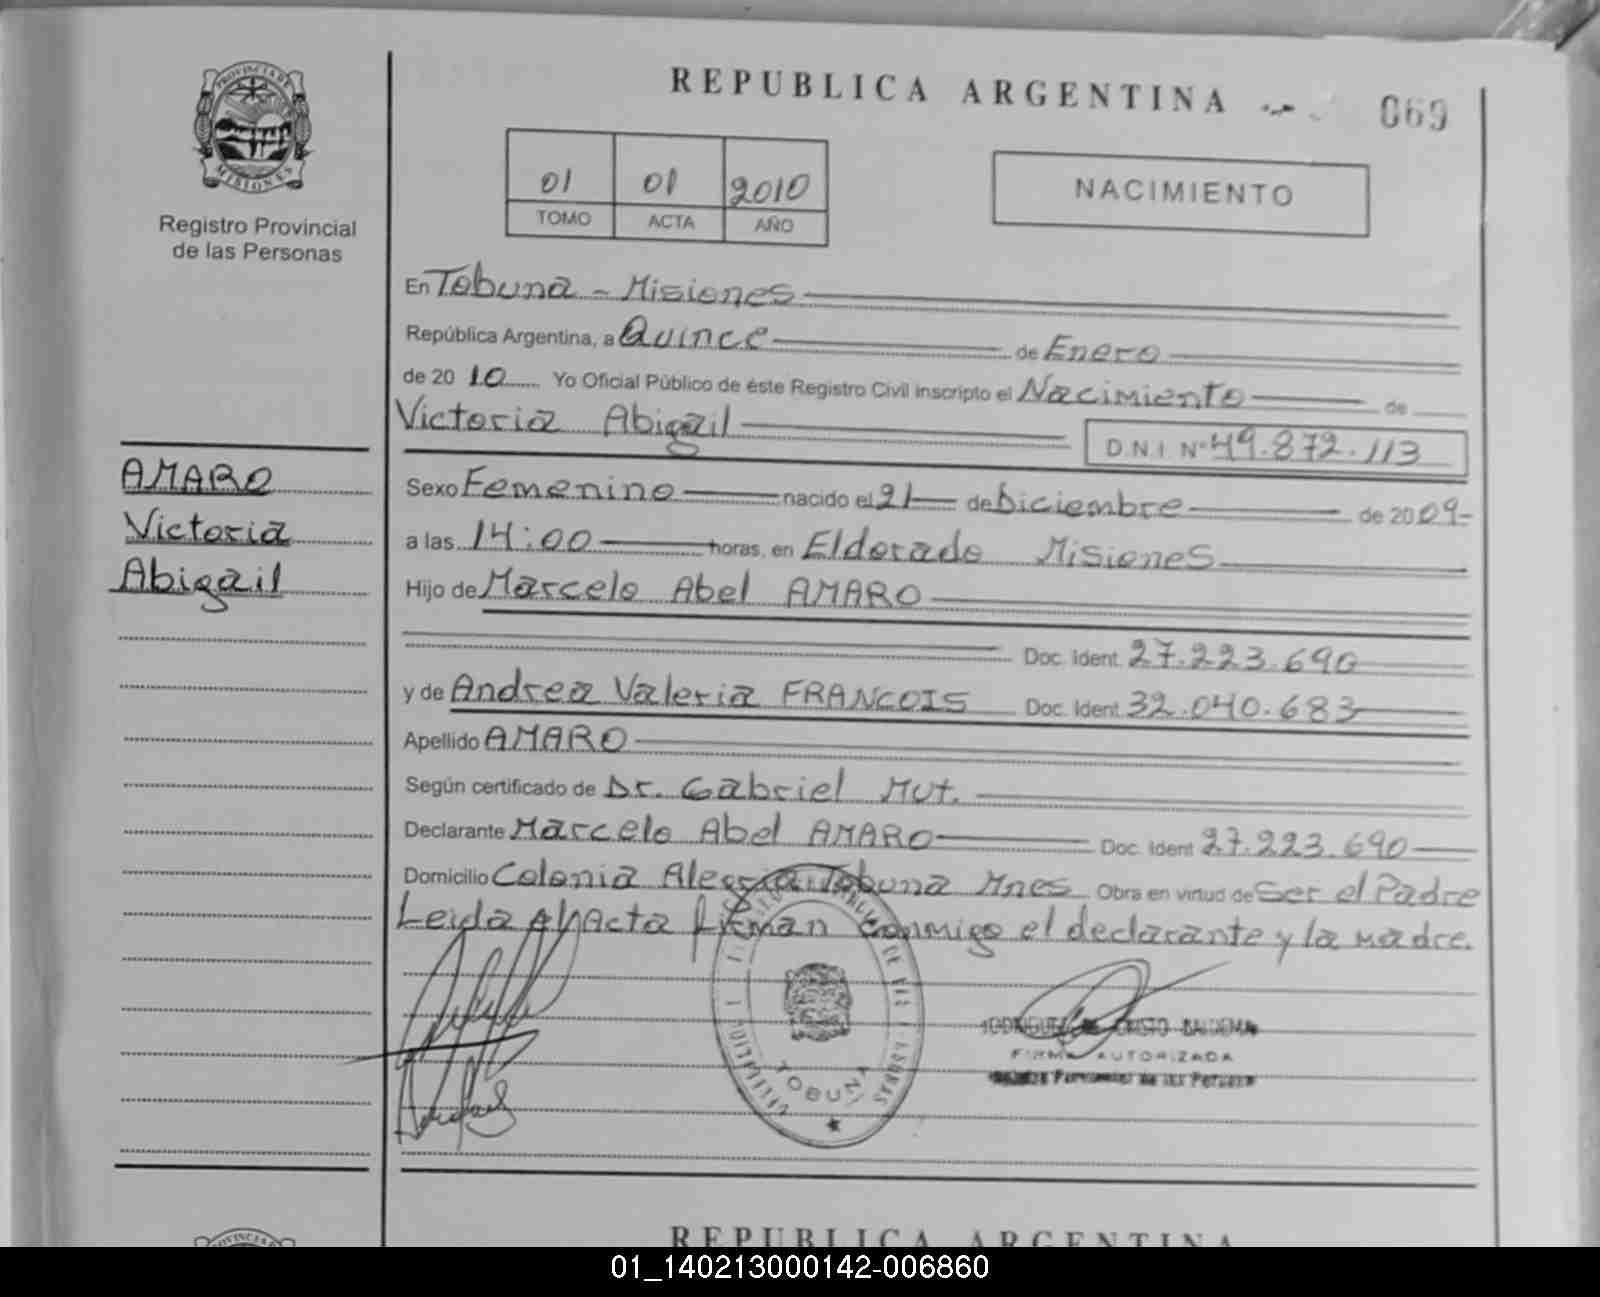 PROVINCIA DE
MISIONES
Registro Provincial
de las Personas
REPUBLICA ARGENTINA 069
01 01 2010
TOMO ACTA AÑO
NACIMIENTO
En Tobuna - Misiones
República Argentina, a Quince de Enero
de 20 10 Yo Oficial Público de éste Registro Civil inscripto el Nacimiento de
Victoria Abigail D.N.I. Nº 49.872.113
AMARO
Victoria
Abigail
Sexo Femenino nacido el 21 de Diciembre de 2009-
a las 14:00 horas, en Eldorado Misiones
Hijo de Marcelo Abel AMARO
Doc. Ident. 27.223.690
y de Andrea Valeria FRANCOIS Doc. Ident. 32.040.683
Apellido AMARO
Según certificado de Dr. Gabriel Mut.
Declarante Marcelo Abel AMARO Doc. Ident 27.223.690
Domicilio Colonia Alegria Tobuna Mnes Obra en virtud de Ser el Padre
Leida el Acta firman conmigo el declarante y la madre.
TOBUNA
FIRMA AUTORIZADA
REPUBLICA ARGENTINA
01_140213000142-006860